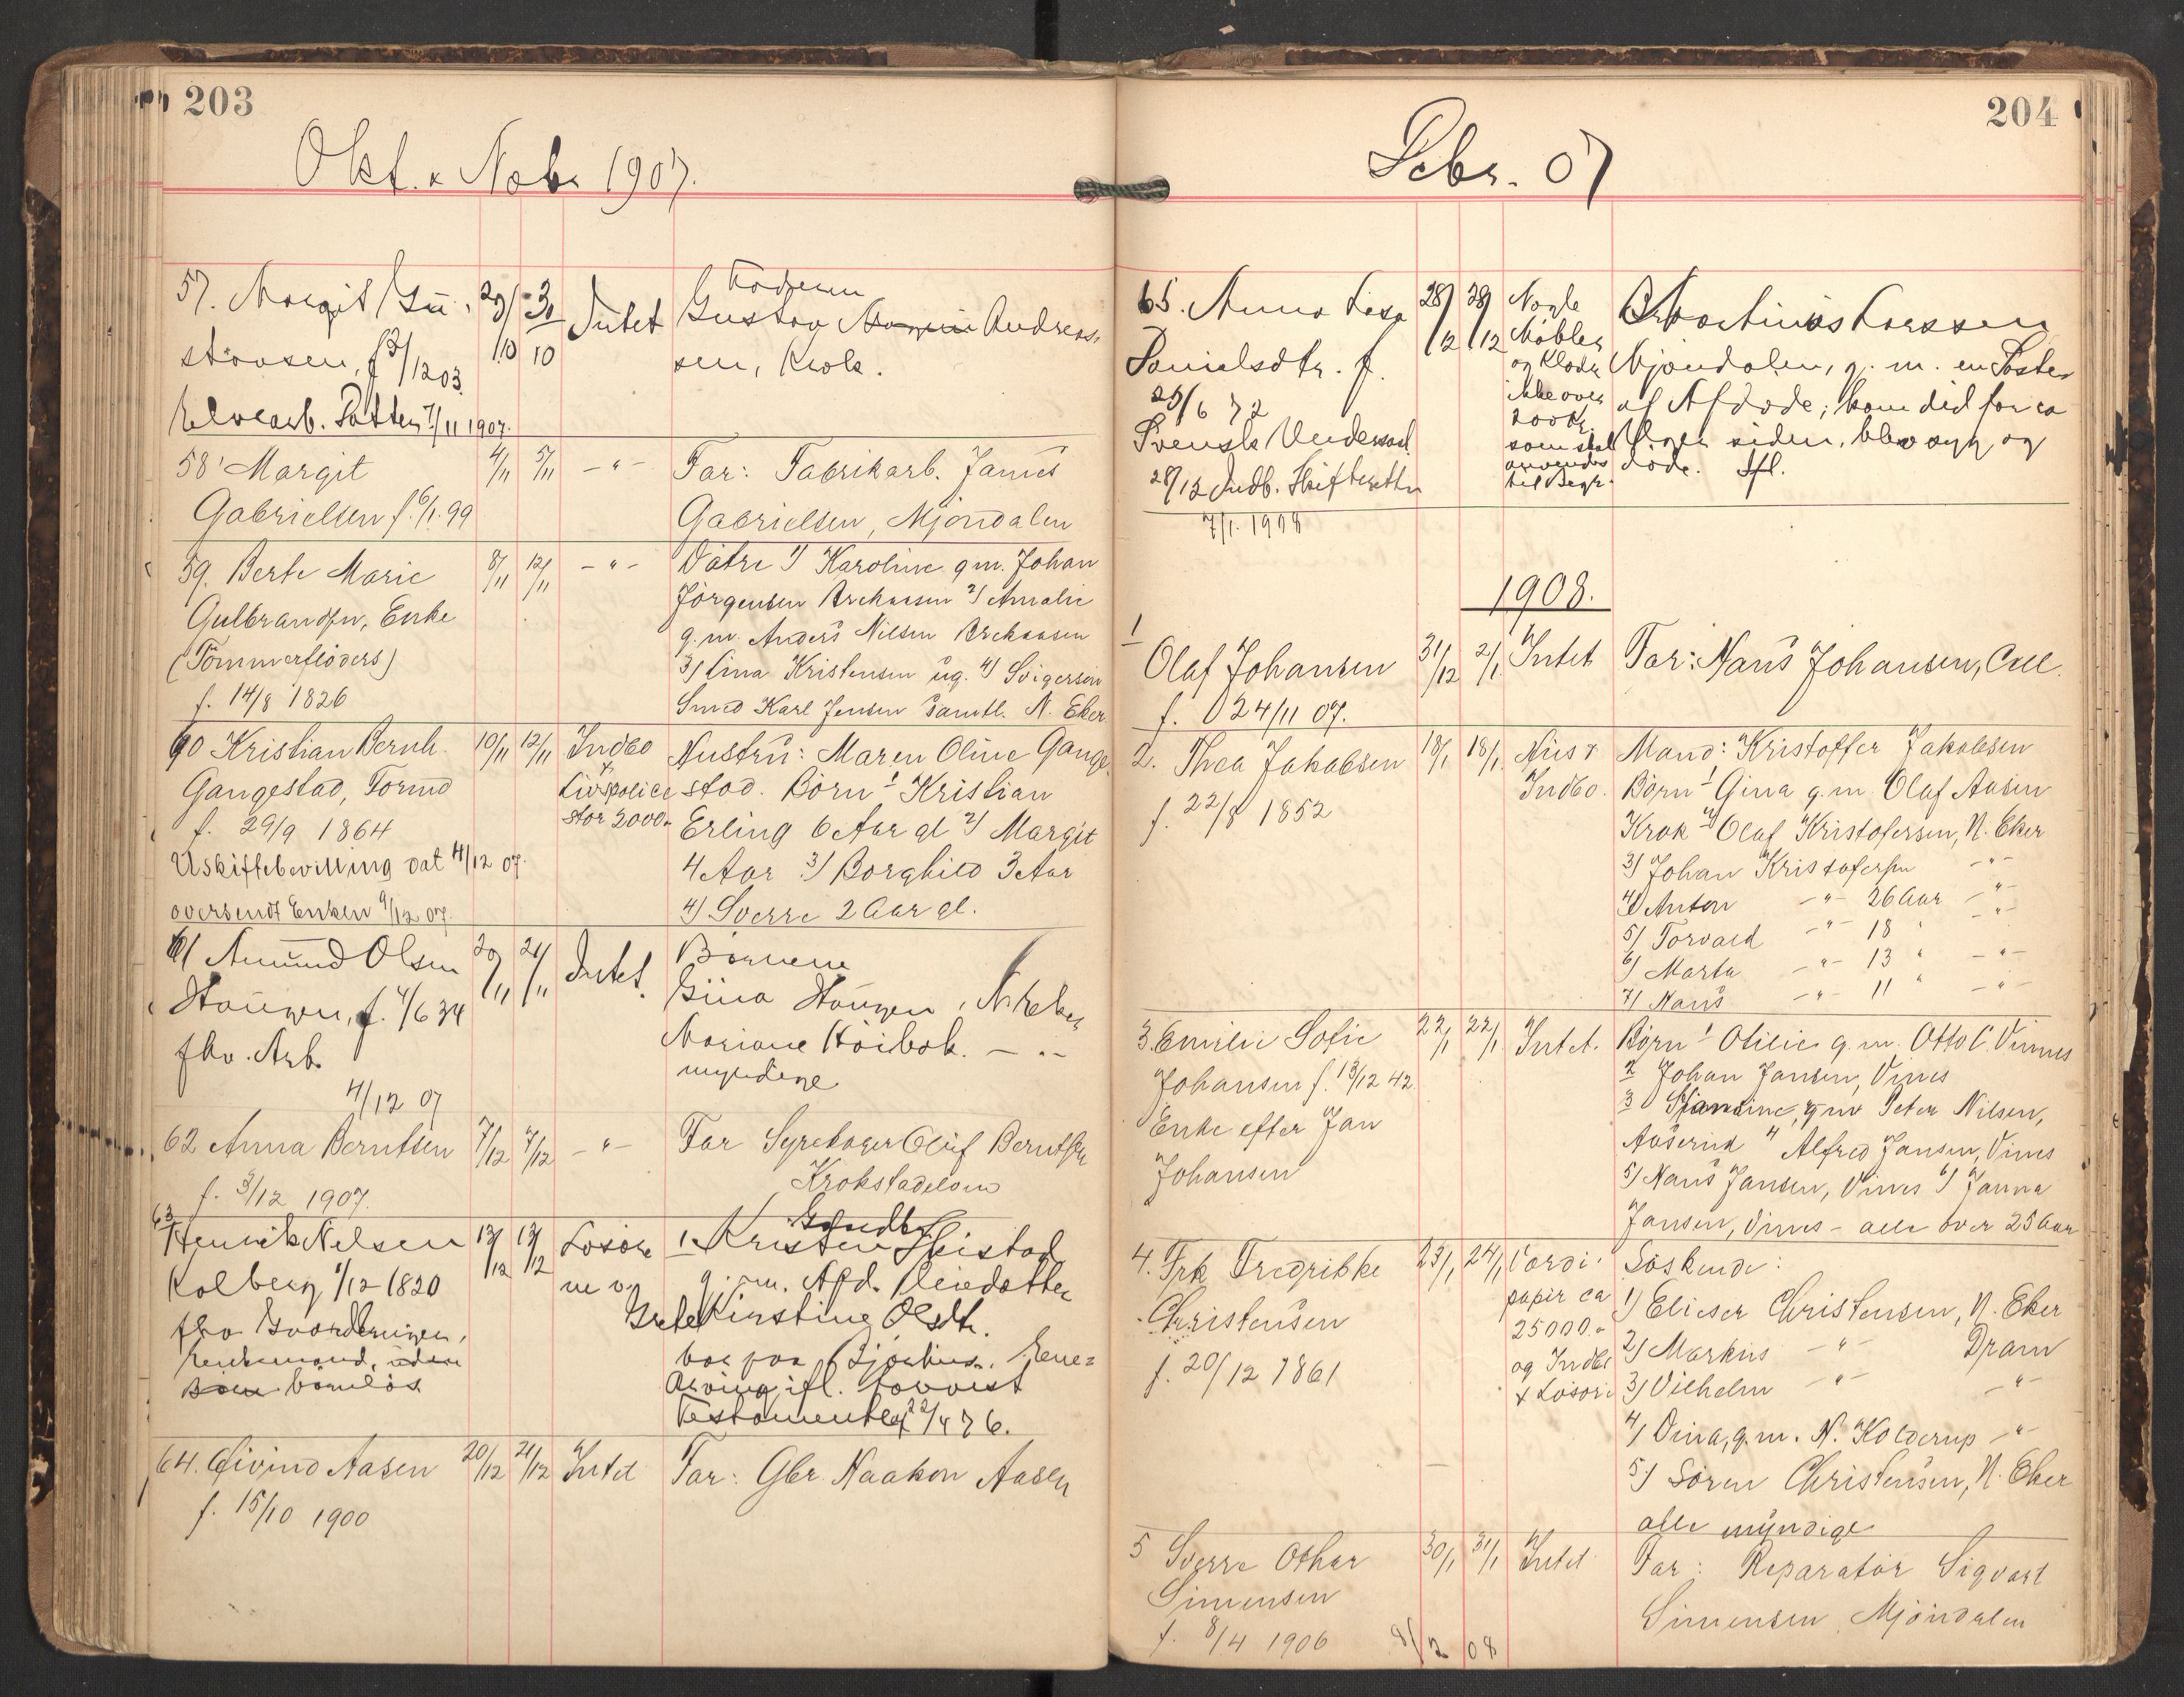 203
Okt. & Nobr 1907.
57. Margit Gu-
stavsen, f 3/12 03
Elvearb. Datter 7/11 1907.
29/10
30/10
Intet
Faderen
Gustav Andreas-
sen, Krok.
58 Margit
Gabrielsen f. 6/1. 99
4/11
5/11
- " -
Far: Fabrikarb. James
Gabrielsen, Mjöndalen
59. Berte Marie
Gulbrandsn, Enke
(Tömmerfløders)
f. 14/8 1826
8/11
12/11
- " -
Døtre 1) Karoline g m. Johan
Jörgensen Brekaasen 2) Amalie
g. m. Anders Nilsen Brekaasen
3) Lina Kristensen ug. 4) Svigersön
Smed Karl Jensen samtl. N. Eker
60 Kristian Bernh.
Gangestad, Formd
f. 29/9 1864
Uskiftebevilling dat 4/12 07.
oversendt Enken 9/12 07.
10/11
12/11
Indbo
+
Livspolice
stor 2000.-
Hustru: Maren Oline Gange-
stad. Børn 1 Kristian
Erling 6 Aar gl 2) Margit
4 Aar 3) Borghild 3 Aar
4) Sverre 2 Aar gl.
61 Amund Olsen
Haugen, f. 4/6 34
fhv. Arb.
4/12 07
20/11
21/11
Intet.
Børnene
Gina Haugen, N. Eker
Mariane Höibak. - " -
myndige
62 Anna Berntsen
f. 3/12 1907.
7/12
7/12
- " -
Far Syrekoger Oluf Berntsen
Krokstadelven
63
Henrik Nilsen
Kolberg 1/12 1820
fhv Gaardbruger,
Enkemand,
barnløs
13/12
13/12
Losöre
ne og
Gaardbr.
1. Kristen Skistad
g. m. Afd. Pleiedatter
Grete Kirstine Olsdtr.
bor paa Ene-
arving ifl.
Testamente af 22/4 76.
64. Eivind Aasen
f. 15/10 1900
20/12
21/12
Intet
Far: Gbr. Haakon Aasen
204
Debr. 07
65. Anna Lisa
Danielsdtr. f.
25/6 72
Svensk Undersaat
28/12 Indb. Skifteretten
7/1. 1908
28/12
28/12
Nogle
Møbler
og Klæder
ikke over
200 kr.
som skal
anvendes
til Begr.
Martinius Larssen
Mjöndalen, g. m. en Søster
af Afdøde; kom did for ca
siden, blev syg og
døde.
1908.
1
Olaf Johansen
f. 24/11 07.
31/12
2/1
Intet
Far: Hans Johansen,
2. Thea Jakobsen
f. 22/8 1852
18/1
18/1
Hus &
Indbo.
Mand: Kristoffer Jakobsen
Børn 1 Gina g. m. Olaf Aasen
Krok 2) Olaf Kristofersen, N. Eker
3) Johan Kristofersn - " -
4) Anton - " - 26 Aar - " -
5) Torvald - " - 18 " - " -
6) Marta - " - 13 " - " -
7) Hans - " - 11 " - " -
3. Emilie Sofie
Johansen f. 13/12 42.
Enke efter Jan
Johansen
22/1
22/1
Intet.
Børn 1 Otilie g. m. Otto C. Vinnes
2 Johan Jansen, Vines
3 gm Peter Nilsen,
Aaserud 4 Alfred Jansen, Vines
5) Hans Jansen, Vines 6) Janna
Jansen, Vines - alle over 25 Aar
4. Frk Fredrikke
Christensen
f. 20/12 1861
23/1
24/1
Værdi-
papir ca
25000.-
og Indbo
& Løsøre
Søskende:
1) Elieser Christensen, N. Eker
2) Markus - " - Dram
3) Vilhelm - " - - " -
4) Dina, g. m. N. Kolderup - " -
5) Sören Christensen, N. Eker
alle myndige
5 Sverre Othar
Simensen
f. 8/4 1906
8/2 08
30/1
31/1
Intet
Far: Reparatør Sigvart
Simensen, Mjöndalen